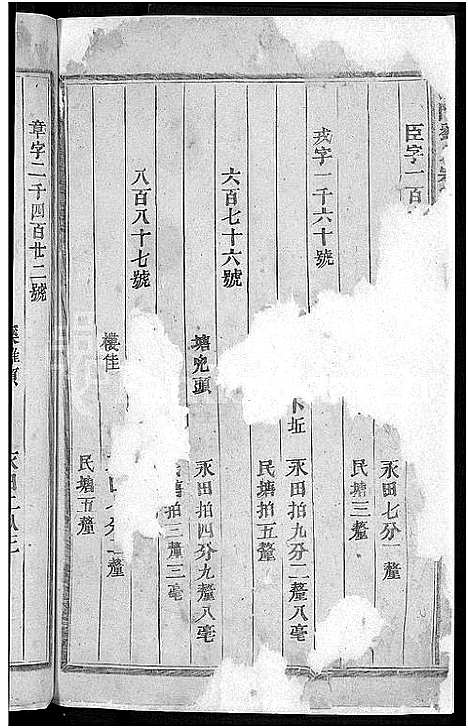 臣字一百
永田七分一釐
民塘三釐
戎字一千六十號
下坵
永田拍九分二釐八毫
民塘拍五釐
六百七十六號
塘兜頭
永田拍四分九釐八毫
拍三釐三毫
八百八十七號
樓佳
釐
民塘五釐
章字二千四百廿二號